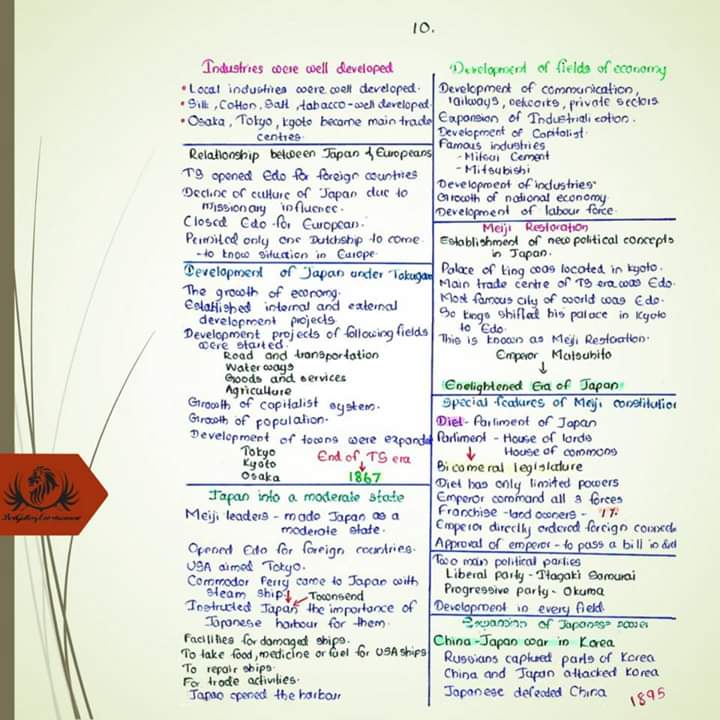 10.
Industries were well developed
• Local industries were well developed.
• Silk, Cotton, Salt, tobacco - well developed
• Osaka, Tokyo, Kyoto became main trade
centres.
Relationship between Japan & Europeans
TS opened Edo for foreign countries
Decline of culture of Japan due to
missionary influence.
Closed Edo for European.
Permitted only one Dutchship to come
- to know situation in Europe.
Development of Japan under Tokugawa
The growth of economy.
Established internal and external
development projects.
Development projects of following fields
were started.
Road and transportation
Water ways
Goods and services
Agriculture
Growth of capitalist system.
Growth of population.
Development of towns were expanded
Tokyo
Kyoto
Osaka
End of TS era
1867
Japan into a moderate state
Meiji leaders - made Japan as a
moderate state.
Opened Edo for foreign countries.
USA aimed Tokyo.
Commodor Perry came to Japan with
steam ship
Townsend
Instructed Japan the importance of
Japanese harbour for them.
Facilities for damaged ships.
To take food, medicine or fuel for USA ships
To repair ships.
For trade activities.
Japan opened the harbour
Development of fields of economy
Development of communication,
railways, networks, private sectors
Expansion of Industrialization.
Development of Capitalist.
Famous industries
- Mitsui Cement
- Mitsubishi
Development of industries
Growth of national economy.
Development of labour force.
Meiji Restoration
Establishment of new political concepts
in Japan.
Palace of king was located in Kyoto.
Main trade centre of TS era was Edo.
Most famous city of world was Edo.
So kings shifted his palace in Kyoto
to Edo.
This is known as Meiji Restoration.
Emperor Matsuhito
Enelightened Era of Japan
Special features of Meiji constitution
Diet - Parliment of Japan
Parliment - House of lords
House of commons
Bicomeral legislature
Diet has only limited powers
Emperor command all 3 forces
Franchise - land owners - 1%
Emperor directly ordered foreign
Approval of emperor - to pass a bill in
Two main political parties
Liberal party - Itagaki Samurai
Progressive party - Okuma
Development in every field
Expansion of Japanese power
China - Japan war in Korea
Russians captured parts of Korea
China and Japan attacked Korea
Japanese defeated China
1895